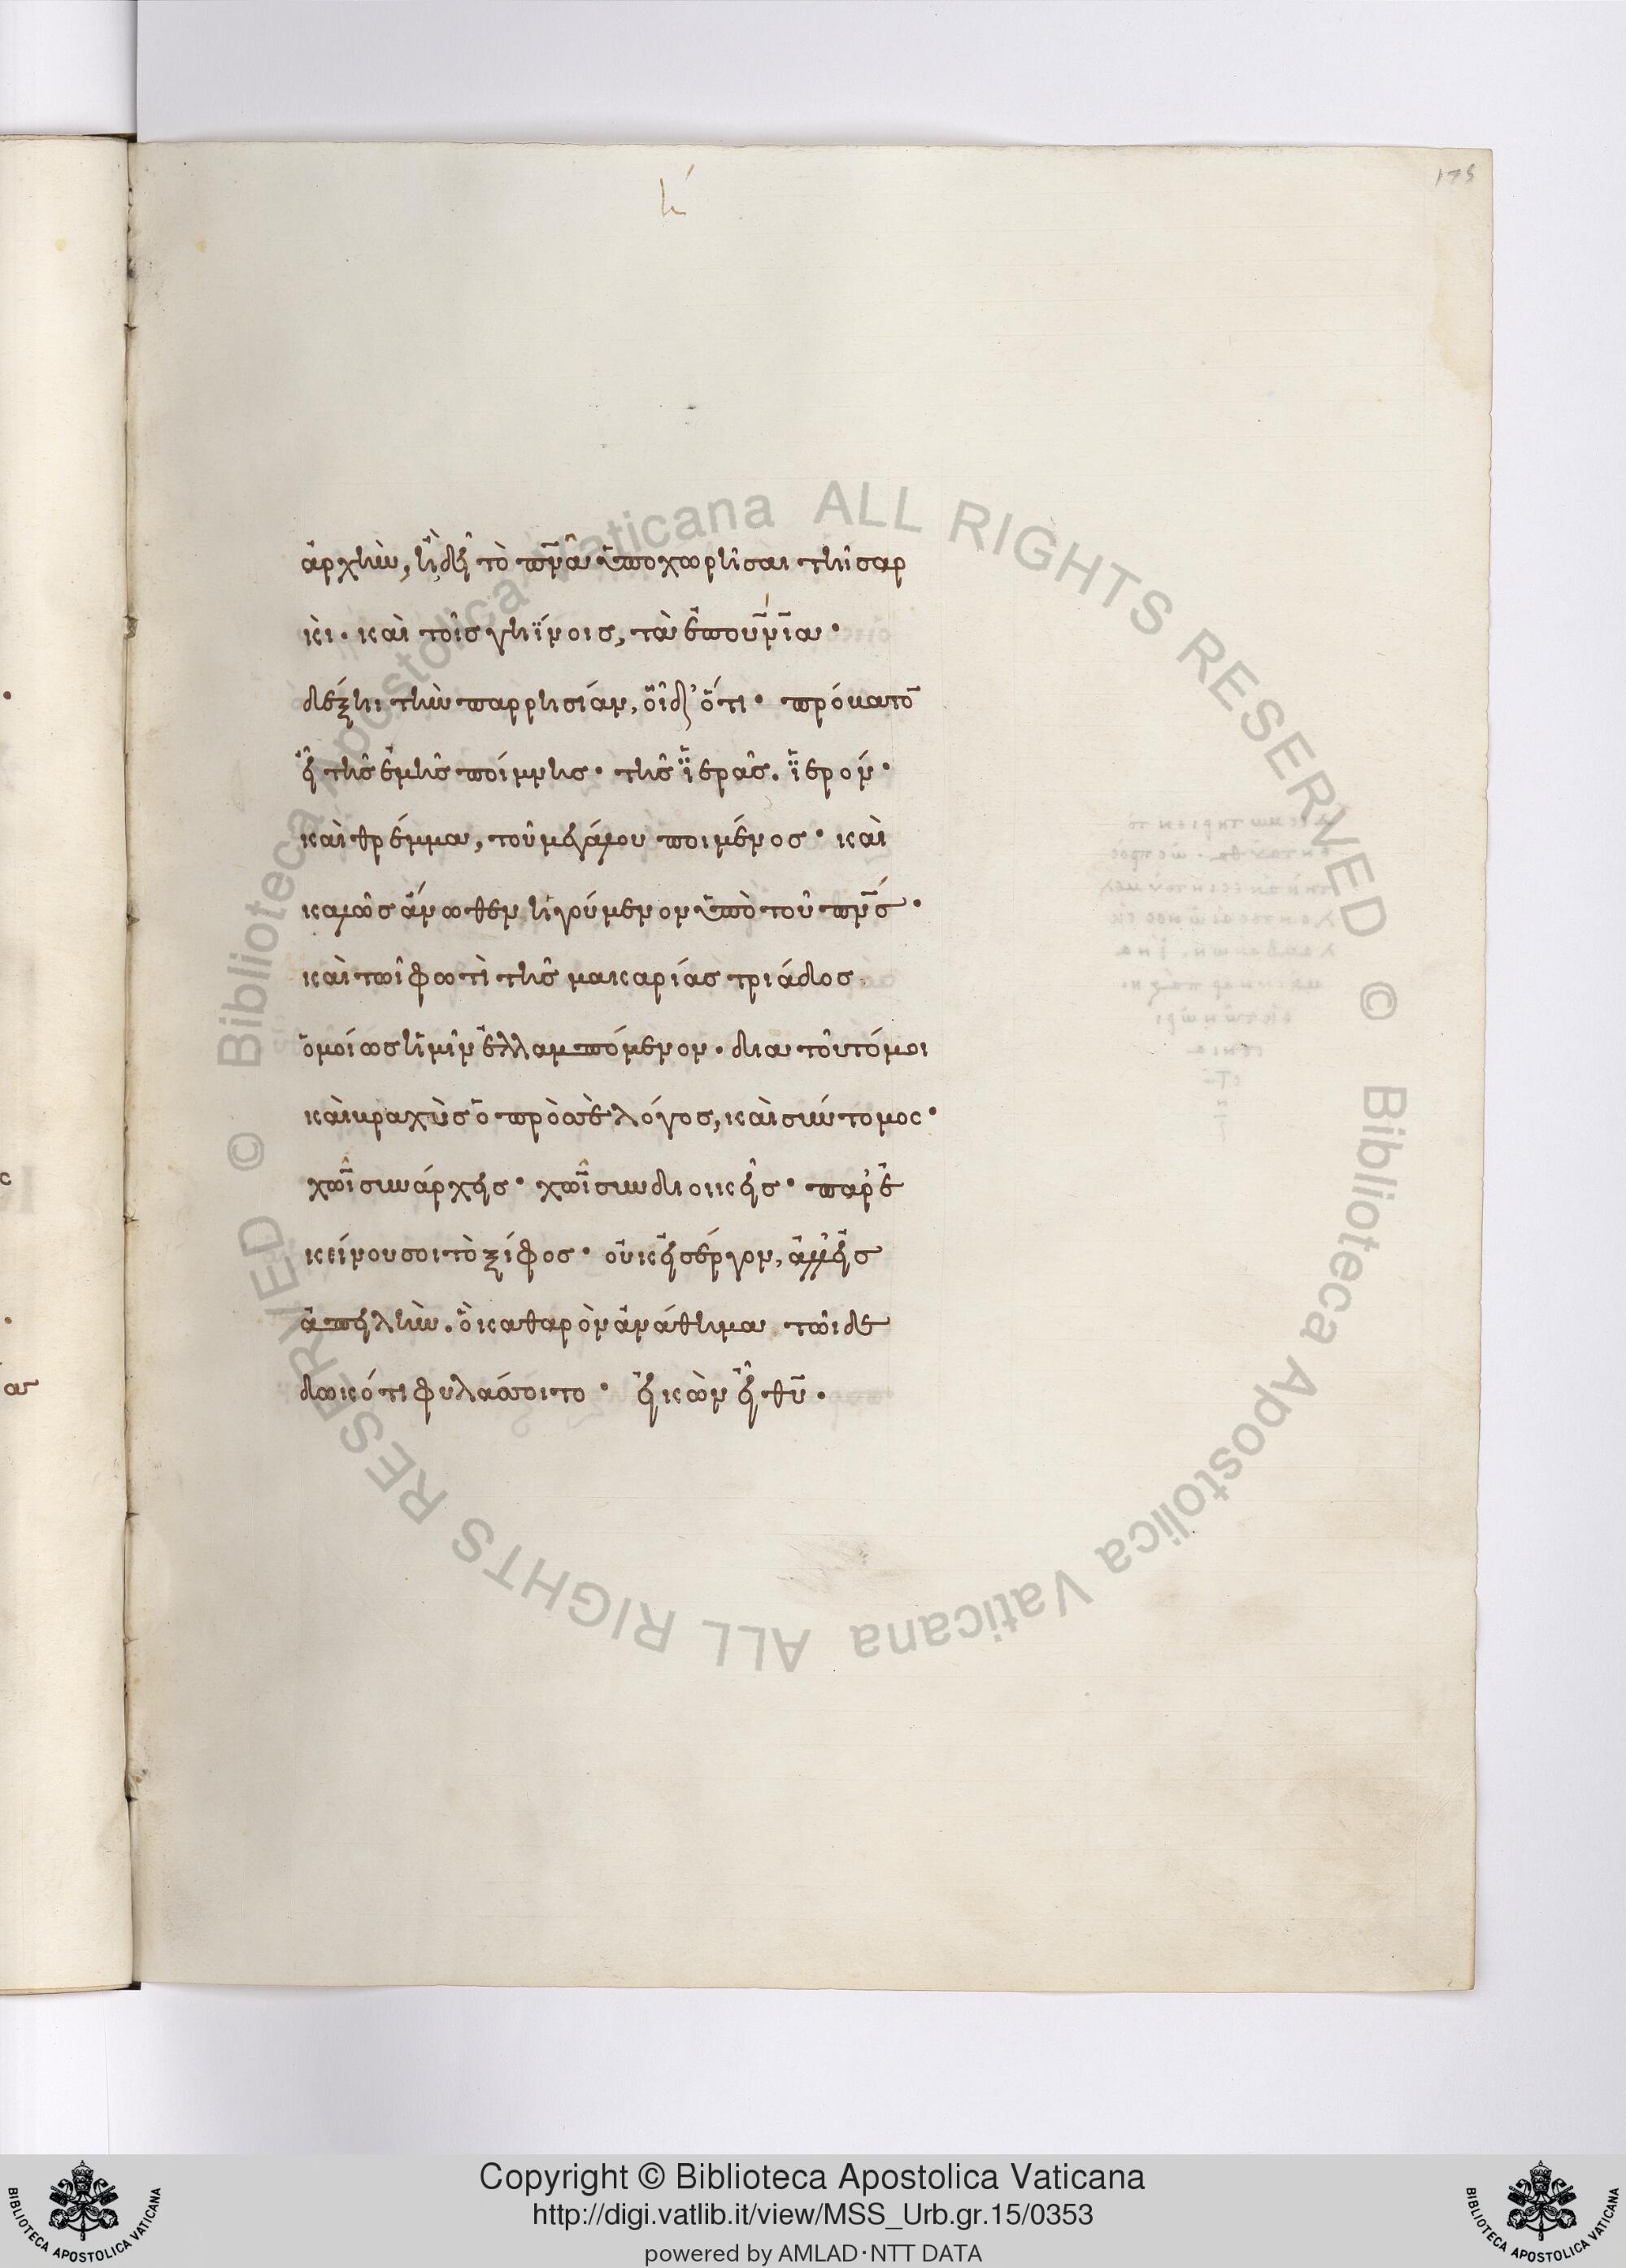 κ́
175
ἀρχὴν, ἢ δεῖ τὸ πν̅α ὑποχωρῆσαι τῆι σαρ
κὶ· καὶ τοῖς γηΐνοις, τὰ ἐπουν̅ια·
δέξηι τὴν παρρησίαν, οἶδ' ὅτι· πρόβατο̅
εἶ τῆς ἐμῆς ποίμνης· τῆς ἱερᾶς. ἱερόν·
καὶ θρέμμα, τοῦ μεγάλου ποιμένος· καὶ
καλῶς ἄνωθεν ἡγούμενον ὑπὸ τοῦ πν̅ς·
καὶ τῶι φωτὶ τῆς μακαρίας τριάδος
ὁμοίως ἡμῖν ἐλλαμπόμενον· δια τοῦτό μοι
καὶ βραχὺς ὁ πρὸς σὲ λόγος, καὶ σύντομος·
χω̅ι συνάρχεις· χω̅ι συνδιοικεῖς· παρ' ἐ
κείνου σοι τὸ ξίφος· οὐκ εἰς ἔργον, ἀλλ' εἰς
ἀπειλὴν. ὃ καθαρὸν ἀνάθημα τῶι δε
δωκότι φυλάσσοιτο· εἰκὼν εἶ θυ̅·
Copyright © Biblioteca Apostolica Vaticana
http://digi.vatlib.it/view/MSS_Urb.gr.15/0353
powered by AMLAD·NTT DATA
© Biblioteca Apostolica Vaticana ALL RIGHTS RESERVED
© Biblioteca Apostolica Vaticana ALL RIGHTS RESERVED
BIBLIOTECA APOSTOLICA VATICANA
BIBLIOTECA APOSTOLICA VATICANA